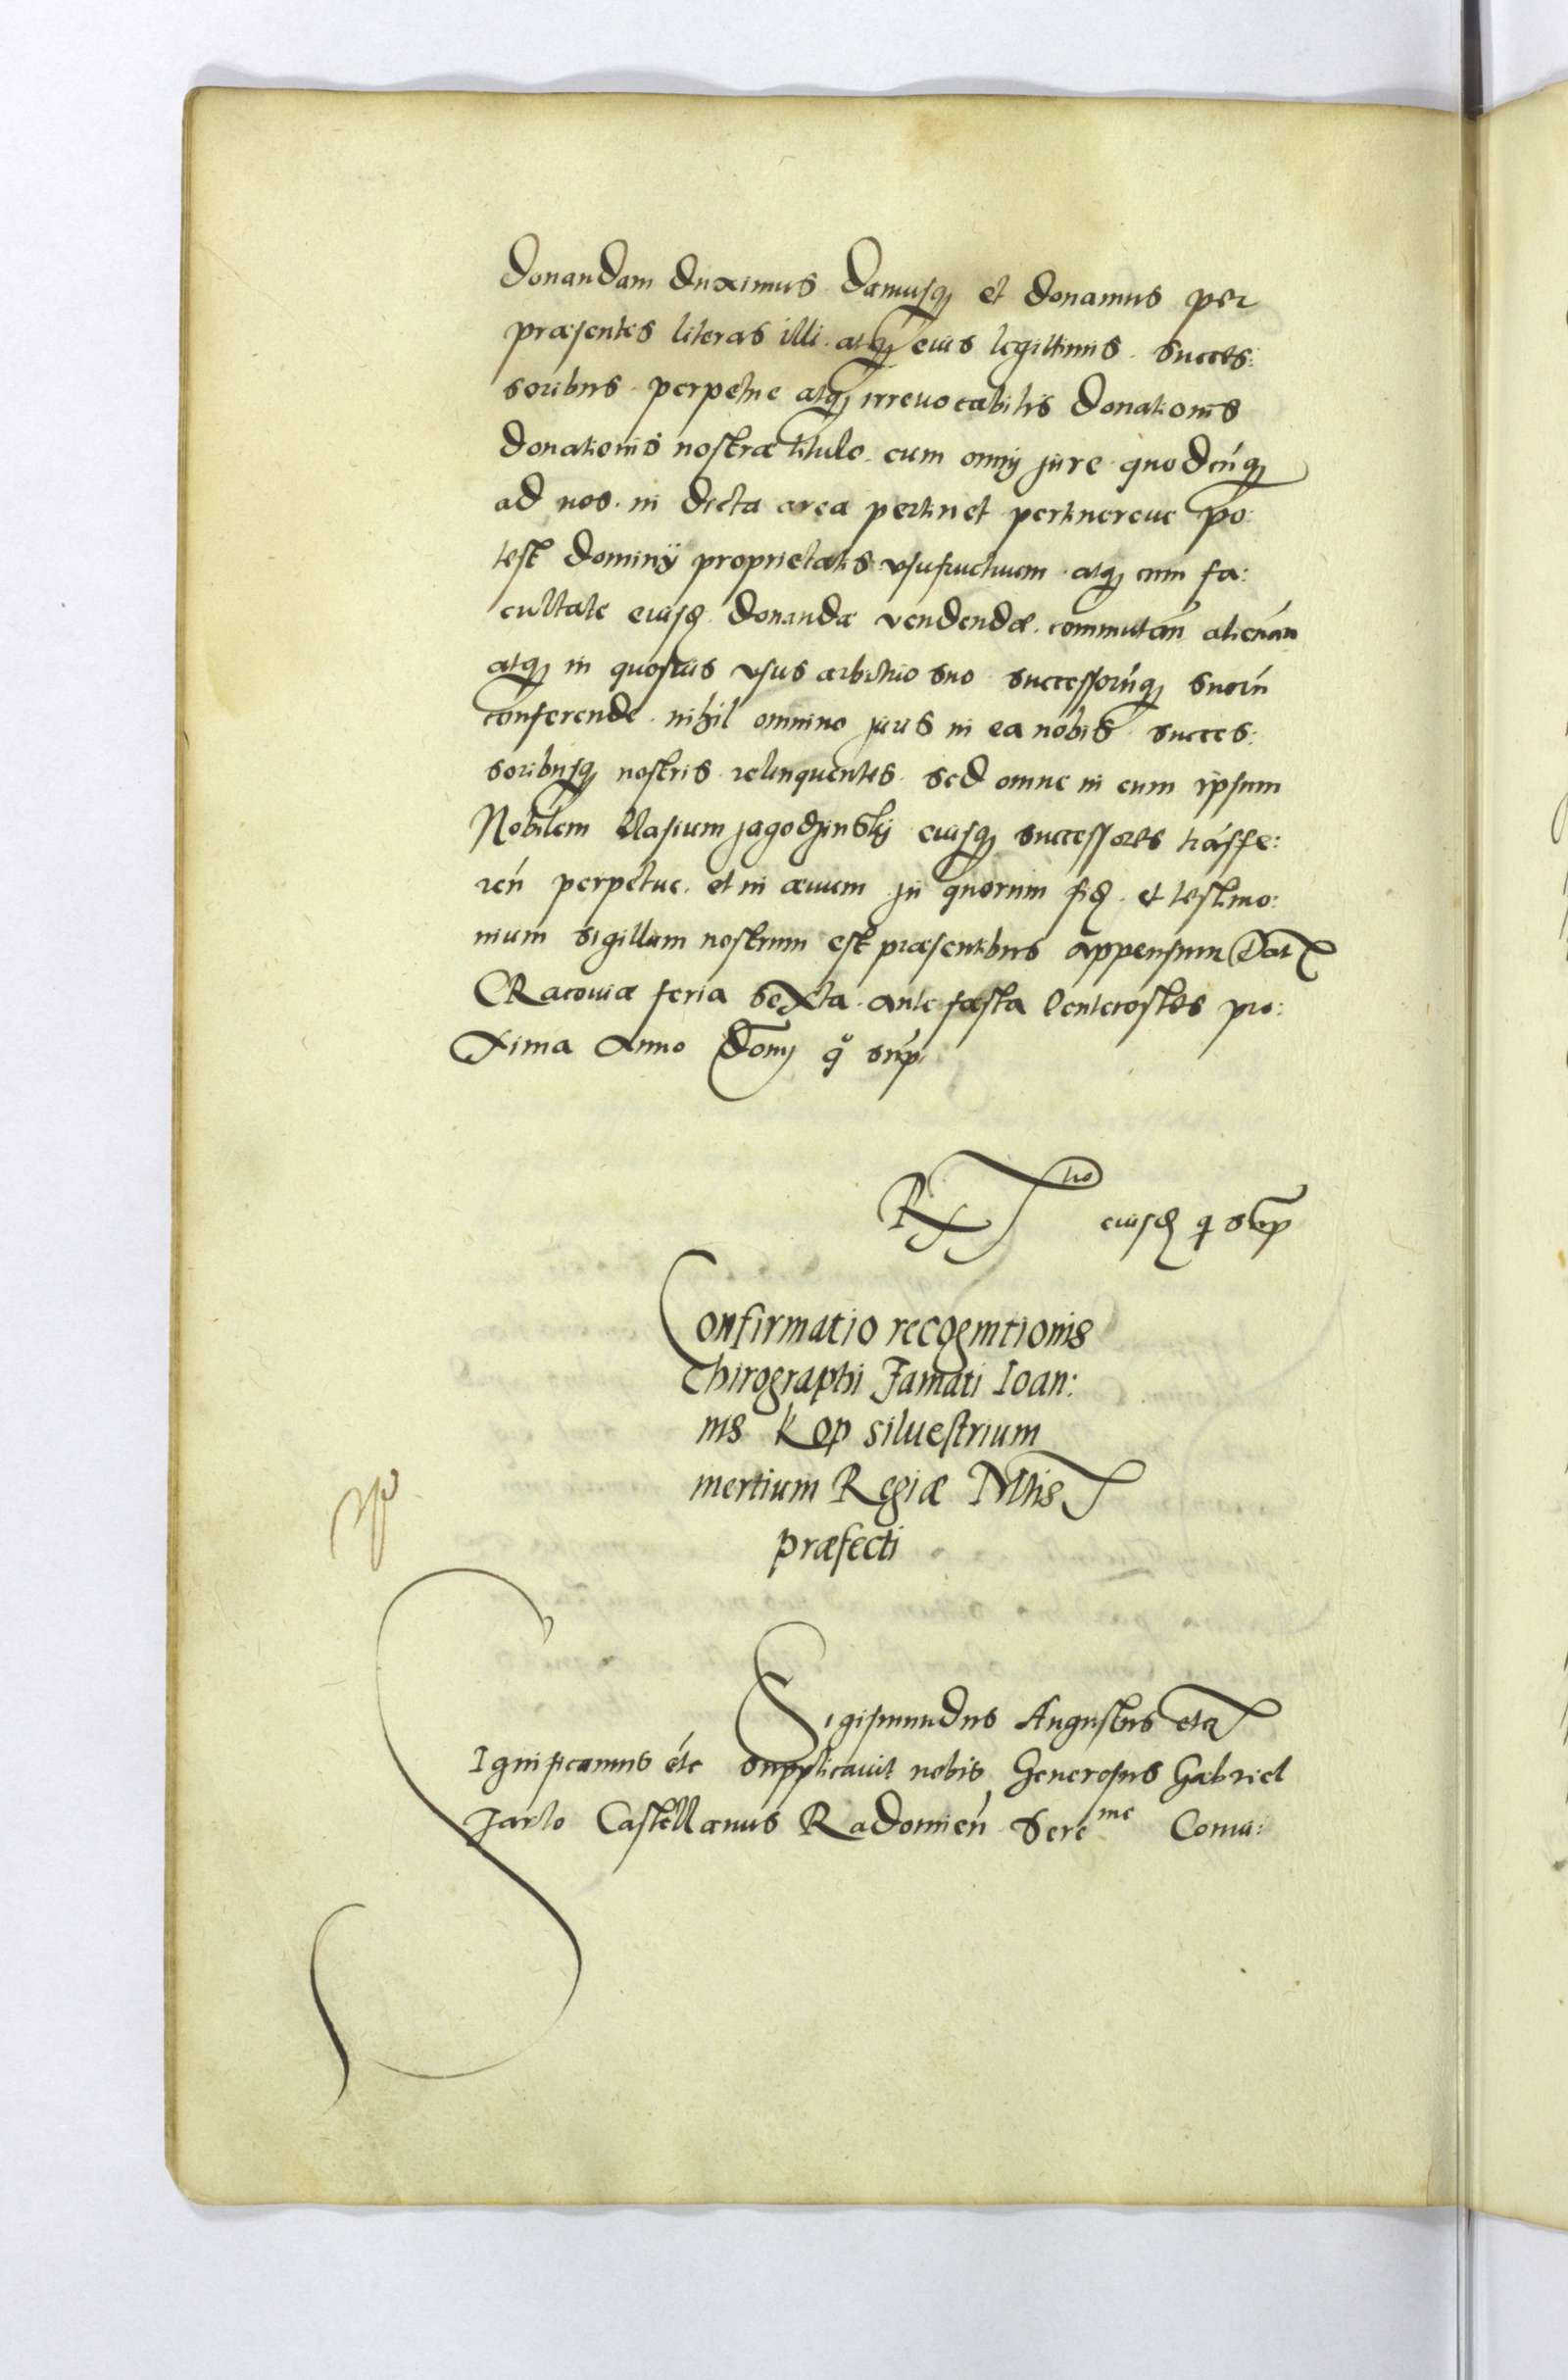 Donandam duximus Damusq₃ et donamus per
præsentes literas illi atq₃ eius legittimis succes:
soribus perpetue atq₃ irreuocabilis Donationis
Donationis nostræ titulo cum omnj jure quodcúq₃
ad nos in dicta area pertinet pertinereue po:
test Dominÿ proprietatis vsufructuum atq₃ cum fa:
cultate eiusḍ Donandæ vendendæ commutań alienań
atq₃ in quosuis vsus arbitrio suo successorúq₃ suorú
conferende nihil omnino juris in ea nobis succes:
soribusq₃ nostris relinquentes sed omne in eum ipsum
Nobilem Blasium jagodzinskj eiusq₃ successores trásfe:
reń perpetue et in æuum jn quorum fiḍ et testimo:
nium sigillum nostrum est præsentibus appensum Dat
CRacouiæ feria sexta ante festa Pentecostes pro:
xima Anno Domj qº sup
Rx Tro eiusḍ q sup
Confirmatio recognitionis
Chirographi Famati Ioan:
nis Kop siluestrium
mertium Regiæ Mtis
præfecti
Sigismundus Augustus etc
SIgnificamus étc supplicauit nobis Generosus Gabriel
Tarlo Castellanus Radomień Sereme Coniu: